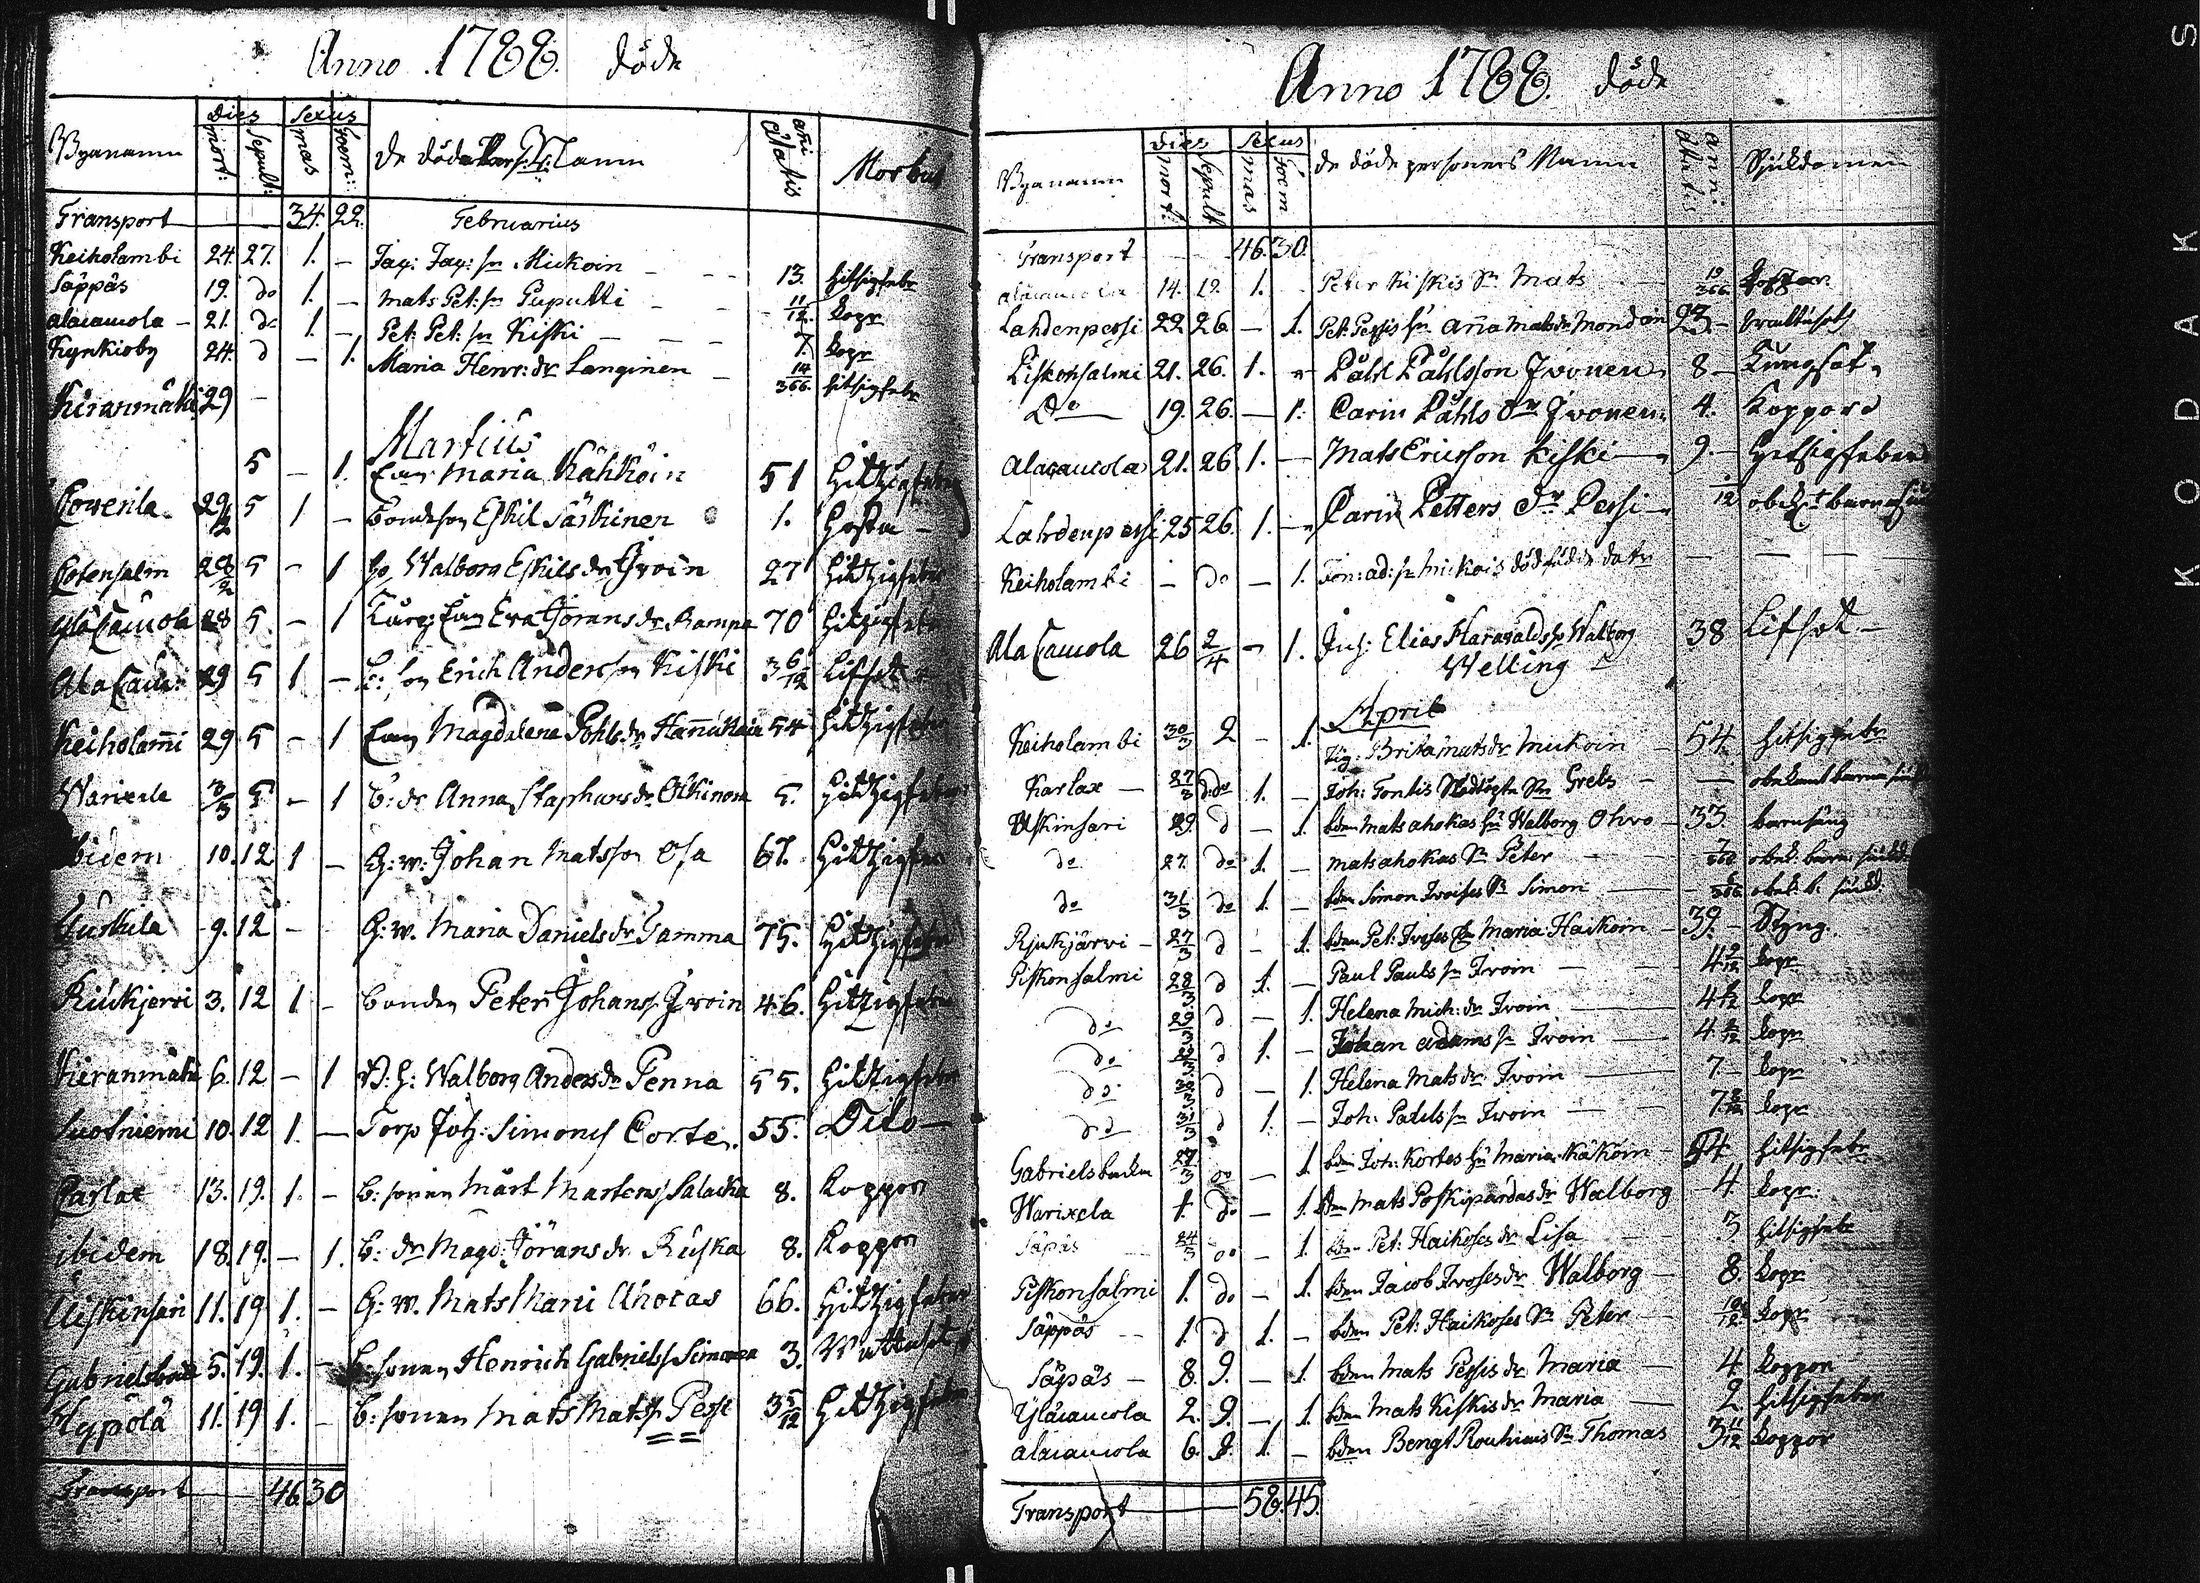 Anno 1788. döde
Bynamn Dies mort: Sepult: Sexus mas Foem: De döde Pers: Namn anni Ætatis Morbus
Transport — — 34. 22. Februarius
Keiholambi 24. 27. 1. — Jac: Jac: sn Mickoin — 13. hitsigfeber
Säppäs 19. do 1. — Mats Pet: sn Puputti — 11/12. kopr
alacaucola — 21. do 1. — Pet: Pet: sn Kiski — 7. kopr
Kyrkioby 24. d — 1. Maria Henr: dr Langinen — 14/366. hitsigfeber
Kiranmäki 29 —
Martius
5 — 1. Maria Kähköin 51 Hitzigfeber
29/2 5 1 — Bondeson Eskil Särkinen 1. Hosta —
28/2 5 — 1 Walborg Eskils dr Ivoin 27 Hitzigfeber
Yläcaucola 28 5 — 1 Eva Jörans dr Rampa 70 Hitzigfeber
Ala Cauc: 29 5 1 — B: son Erich Andersson Kiski 3 6/12 Lifsot
Keiholami 29 5 — 1 Magdalena Pohls dr Hannukain 54 Hitzigfeber
Warixela 3/3 5 — 1 B: dr Anna Staphans dr Olkinora 5. Hitzigfeber
ibidem 10. 12 1 — G: w: Johan Matsson Osa 67. Hitzigfeber
9. 12 — G: w. Maria Daniels dr Tamma 75. Hitzigfeber
Riukjervi 3. 12 1 — Bonden Peter Johans Ivoin 46. Hitzigfeber
Kieranmäki 6. 12 — 1 Walborg Anders dr Penna 55. Hitzigfeber
Suotniemi 10. 12 1. — Torp Joh: Simons Corte. 55. Dito —
Carlax 13. 19. 1. — B: sonen Mårt Martens Salacka 8. Koppor
ibidem 18. 19. — 1. B: dr Magd: Jörans dr Ruska 8. Koppor
Uiskinsari 11. 19 1. — G: w. Mats Mani Ahocas 66. Hitzigfeber
Gabrielsback 5. 19. 1. — B: sonen Henrich Gabriels Simonen 3. Wattusot
Hypölä 11. 19 1. — B: sonen Mats Mats Pessi 3 5/12 Hitzigfeber
Transport — 46 30
Anno 1788. döde
Bynamn Dies mort: Sepult Sexus mas Foem de döde personers Namn anni ætatis Sjukdomen
Transport — — 46. 30.
alacaucola 14. 19. 1. — Peter Kiskis Sn Mats — 19/366
Lahdenpersi 22 26 — 1. Pet: Pessis hu Anna Mats dr Mondoin 27 — wattusot
Piskonsalmi 21. 26. 1. — Påhl Påhlsson Ivonen 8 — Lungsot
Do — 19. 26. — 1. Carin Påhls dr Ivonen 4. Koppor
Alacaucola 21. 26 1. — Mats Ericsson Kiski — 9. — Hetsigfeber
Lahdenpersi 25 26. 1. — Carin Petters Dr Persi — 1/12 obek:t barnsju
Keiholambi — do — 1. ad: sn Mickois dödfödde — — —
Ala Caucola 26 2/4 — 1. Inh: Elias Harawalds Walborg 38 Lifsot —
Welling
April
Keiholambi 30/3 2 — 1. Brita Mats dr Mickoin — 54 hitsigfeber
Karlax — 27/3 do 1. — Joh: Tontis Sn Grels — — obekant barnsjuk
Uiskinsari 29. d — 1. bdn Mats ahokas hu Walborg Ohvo — 33 barnsäng
do 27. do 1. — Mats ahokas Sn Peter — obek: barnsjukd
do 31/3 do 1. — bdn Simon Ivoises Sn Simon — obek: b: sjukd
Rjukjärvi — 27/3 d — 1. bdn Pet: Ivoses Maria Haikoin — 39. — Styng.
Piskonsalmi 28/3 d 1. — Paul Pauls sn Ivoin — 4 2/12 kopr
do 29/3 d — 1. Helena Mich: dr Ivoin — kopr
do d 1. — Johan adams sn Ivoin — kopr
do 30/3 d — 1. Helena Mats dr Ivoin — 7 — kopr
do 31/3 d 1. — Joh: Pauls sn Ivoin — kopr
Gabrielsbacka 27/3 do — 1 bdn Joh: Kortes hu Maria Käköin — 54 hitsigfeber
Warixela 1. do — 1. bdn Mats Poskipardas dr Walborg — 4. kopr:
Säpäs 24/3 do — 1 bdn Pet: Haikoses dr Lisa — 3 hitsigfeber
Piskonsalmi 1. do — 1. bdn Jacob Ivoses dr Walborg — 8. kopr
Säppäs — 1. d 1. — bdn Pet: Haikoses Sn Peter — 10/12. kopr
Säpäs — 8. 9. — 1. bdn Mats Pessis dr Maria — 4 koppor
Yläcaucola 2. 9. — 1. bdn Mats Kiskis dr Maria — 2 hitsigfeber
alacaucola 6. 9. 1. — bdn Bengt Rouhiais Sn Thomas 3 11/12 koppor
Transport — 58. 45.
KODAK S